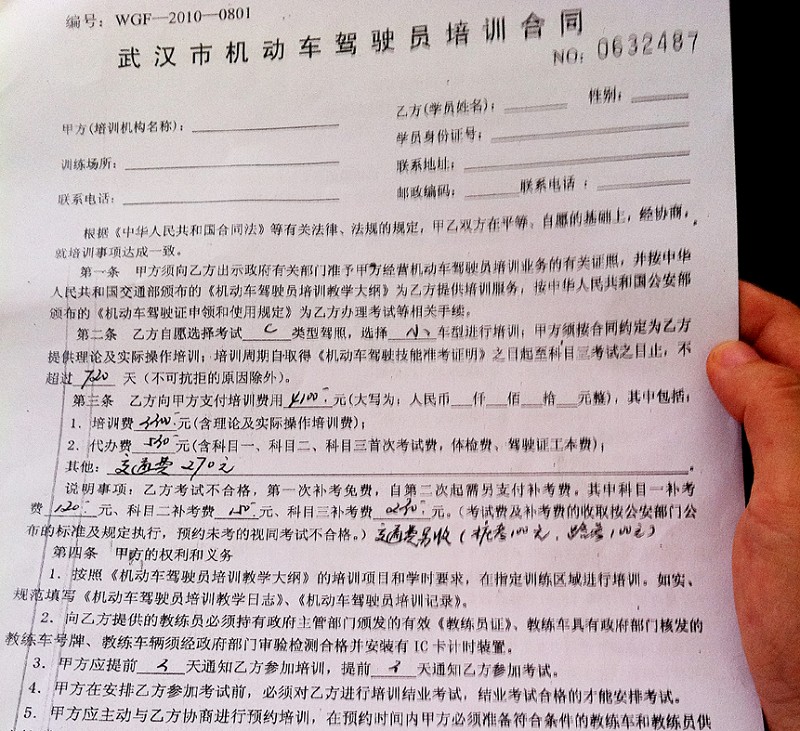 编号：WGF—2010—0801
武汉市机动车驾驶员培训合同
NO: 0632487
甲方(培训机构名称)：
乙方(学员姓名)： 性别：
学员身份证号：
训练场所：
联系地址：
联系电话：
邮政编码： 联系电话：
根据《中华人民共和国合同法》等有关法律、法规的规定，甲乙双方在平等、自愿的基础上，经协商，
就培训事项达成一致。
第一条 甲方须向乙方出示政府有关部门准予甲方经营机动车驾驶员培训业务的有关证照，并按中华
人民共和国交通部颁布的《机动车驾驶员培训教学大纲》为乙方提供培训服务，按中华人民共和国公安部
颁布的《机动车驾驶证申领和使用规定》为乙方办理考试等相关手续。
第二条 乙方自愿选择考试 C 类型驾照，选择 小 车型进行培训；甲方须按合同约定为乙方
提供理论及实际操作培训；培训周期自取得《机动车驾驶技能准考证明》之日起至科目三考试之日止，不
超过 720 天（不可抗拒的原因除外）。
第三条 乙方向甲方支付培训费用 4100 元(大写为：人民币 仟 佰 拾 元整)，其中包括：
1．培训费 3300 元(含理论及实际操作培训费)；
2．代办费 530 元(含科目一、科目二、科目三首次考试费，体检费、驾驶证工本费)；
其他：交通费 270元
说明事项：乙方考试不合格，第一次补考免费，自第二次起需另支付补考费。其中科目一补考
费 120 元、科目二补考费 150 元、科目三补考费 230 元。(考试费及补考费的收取按公安部门公
布的标准及规定执行，预约未考的视同考试不合格。) 交通费另收（桩考100元，路考100元）
第四条 甲方的权利和义务
1．按照《机动车驾驶员培训教学大纲》的培训项目和学时要求，在指定训练区域进行培训。如实、
规范填写《机动车驾驶员培训教学日志》、《机动车驾驶员培训记录》。
2．向乙方提供的教练员必须持有政府主管部门颁发的有效《教练员证》、教练车具有政府部门核发的
教练车号牌、教练车辆须经政府部门审验检测合格并安装有 IC 卡计时装置。
3．甲方应提前 天通知乙方参加培训，提前 天通知乙方参加考试。
4．甲方在安排乙方参加考试前，必须对乙方进行培训结业考试，结业考试合格的才能安排考试。
5．甲方应主动与乙方协商进行预约培训，在预约时间内甲方必须准备符合条件的教练车和教练员供